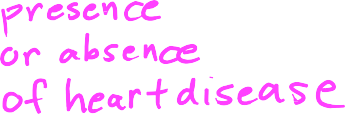 presence
or absence
of heart disease